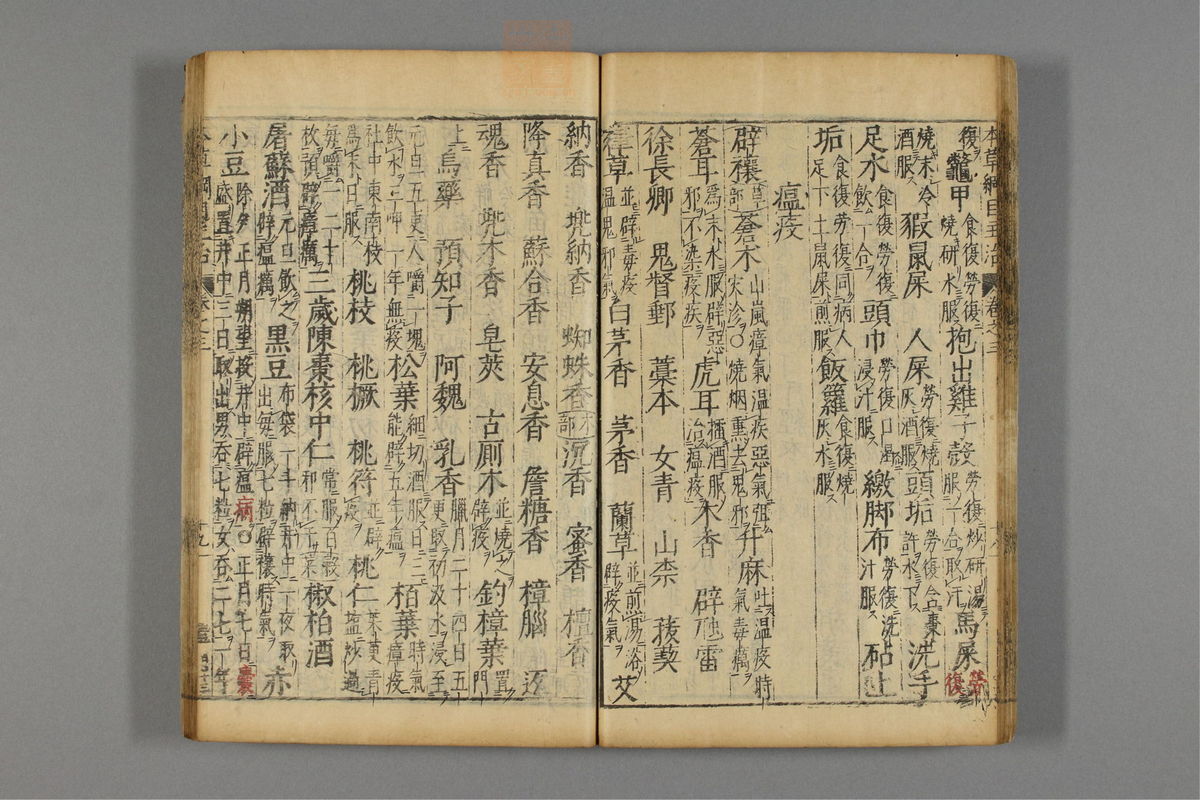 本草綱目主治 卷之三
復 鼈甲 食復勞復燒研水服 抱出雞子殼 勞復炒研湯服一合取汗 馬屎 勞復
燒末冷酒服 豭鼠屎 人屎 勞復燒灰酒服 頭垢 勞復含棗許水下 洗手
足水 食復勞復飲一合 頭巾 勞復口渴浸汁服 繳脚布 勞復洗汁服 砧上
垢 食復勞復同病人足下土鼠屎煎服 飯籮 食復燒灰水服
瘟疫
辟禳 草部 蒼朮 山嵐瘴氣溫疾惡氣弭災沴○燒烟熏去鬼邪 升麻 吐溫疫時氣毒癘
蒼耳 爲末水服辟惡邪不染疫疾 虎耳 擂酒服治瘟疫 木香 辟虺雷
徐長卿 鬼督郵 藁本 女青 山柰 菝葜
葎草 並辟毒疫溫鬼邪氣 白茅香 茅香 蘭草 並煎湯浴辟疫氣 艾
納香 兜納香 蜘蛛香 木部 沉香 蜜香 檀香
降真香 蘇合香 安息香 詹糖香 樟腦 返
魂香 兜木香 皂莢 古厠木 並燒之辟疫 釣樟葉 置門
上 烏藥 預知子 阿魏 乳香 臘月二十四日五更取初汲水浸至
元旦五更人嚼一塊飲水三呷一年無疫 松葉 細切酒服日三能辟五年瘟 柏葉 時氣瘴疫
社中東南枝爲末日服 桃枝 桃橛 桃符 並辟疫 桃仁 茱萸青鹽炒過
每嚼一二十枚預辟瘴癘 三歲陳棗核中仁 常服百邪不干 椒柏酒
屠蘇酒 元旦飲之辟瘟癘 黑豆 布袋一斗納井中一夜取出每服七粒辟禳時氣 赤
小豆 除夕正月朔望投井中辟瘟病○正月七日囊盛置井中三日取出男吞七粒女吞二七一年
本草綱目主治 卷之三 十九